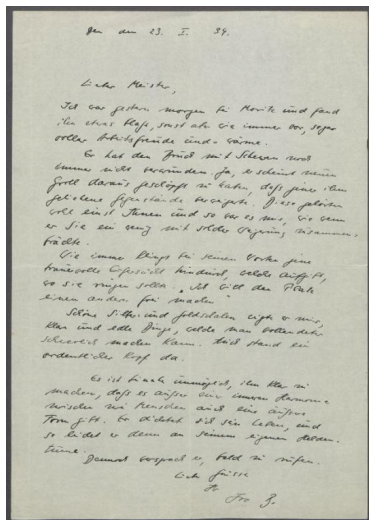 den 23. I. 34.
Lieber Meister,
Ich war gestern morgen bei Moritz und fand
ihn etwas blaß, sonst aber wie immer vor, sogar
voller Arbeitsfreude und -wärme.
Er hat den Bruch mit noch
immer nicht verwunden. Ja, er scheint neuen
Groll daraus geschöpft zu haben, daß jener ihm
geliehene Gegenstände verweigerte. Diese gehörten
wohl einst Ihnen und so war es mir, wie wenn
er Sie ein wenig mit solcher Weigerung zusammen
brächte.
Wie immer klingt bei seinen Worten jene
Eifersucht hindurch, welche
wo sie singen sollte „Ich will den
einen andern frei machen"
Schöne Silber- und Goldschalen zeigte er mir,
klar und edle Dinge, welche man vollendeter
schwerlich machen kann. Auch stand ein
ordentlicher Kopf da.
Es ist beinahe unmöglich, ihm klar zu
machen, daß es außer einer inneren Harmonie
zwischen zwei Menschen auch eine äußere
Form gibt. Er dichtet sich sein Leben, und
so leidet er denn an seinem eigenen Helden-
tume.
Dennoch versprach er, bald zu rufen.
Liebe Grüsse
Ihr
B.